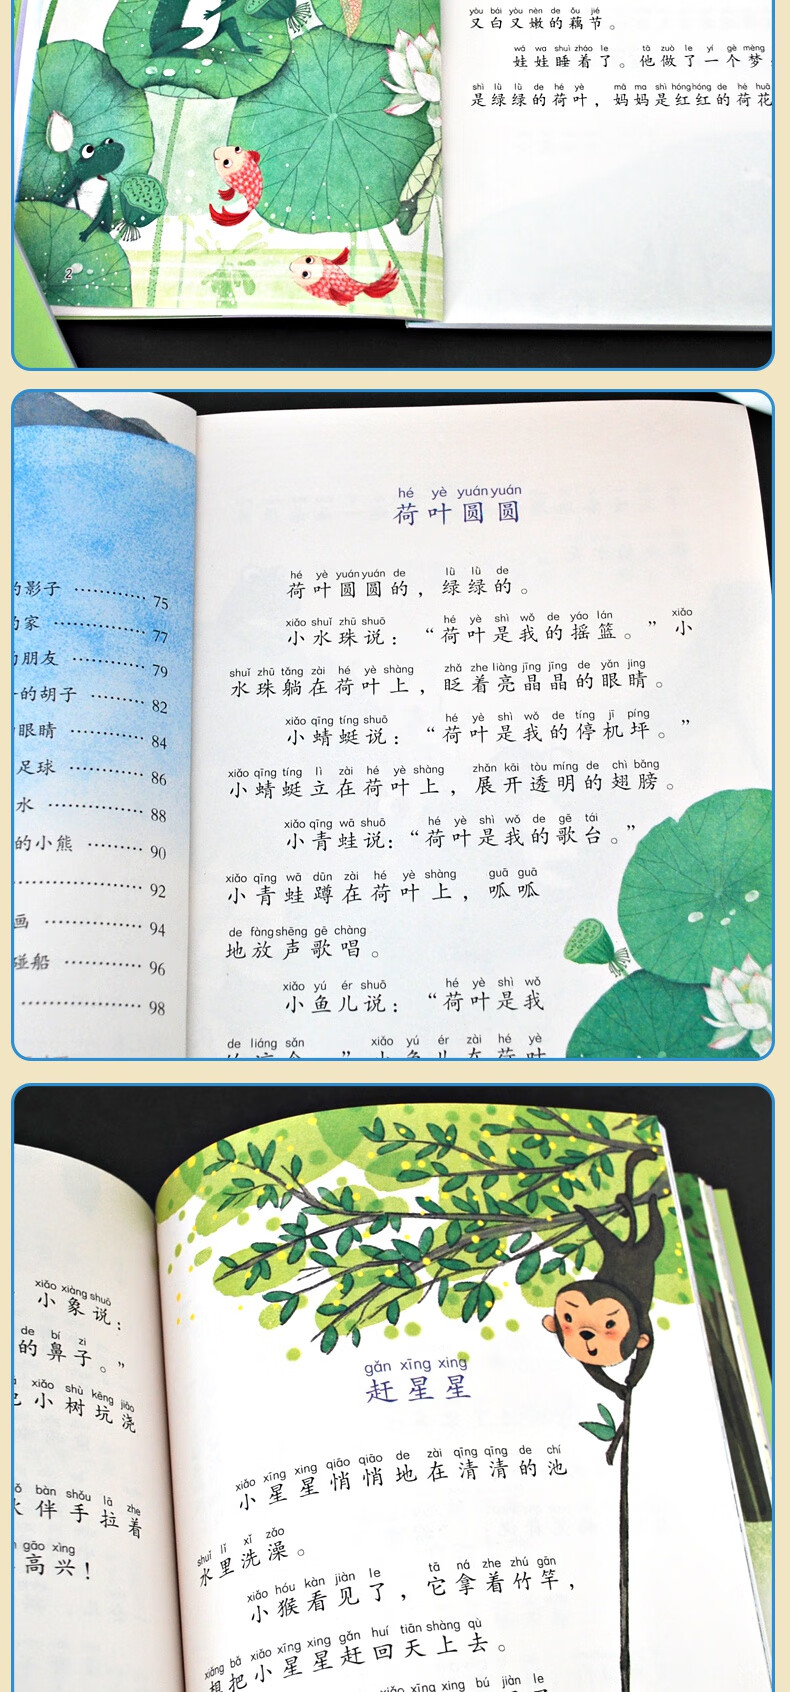 yòu bái yòu nèn de ǒu jié
又白又嫩的藕节。
wá wa shuì zháo le tā zuò le yí gè mèng
娃娃睡着了。他做了一个梦
shì lǜ lǜ de hé yè mā ma shì hóng hóng de hé huā
是绿绿的荷叶，妈妈是红红的荷花
2
的影子 ………… 75
的家 ………… 77
的朋友 ………… 79
的胡子 ……… 82
眼睛 ………… 84
足球 ………… 86
水 ………… 88
的小熊 ……… 90
………… 92
画 ………… 94
碰船 ………… 96
………… 98
hé yè yuán yuán
荷叶圆圆
hé yè yuán yuán de lǜ lǜ de
荷叶圆圆的，绿绿的。
xiǎo shuǐ zhū shuō hé yè shì wǒ de yáo lán xiǎo
小水珠说：“荷叶是我的摇篮。”小
shuǐ zhū tǎng zài hé yè shàng zhǎ zhe liàng jīng jīng de yǎn jing
水珠躺在荷叶上，眨着亮晶晶的眼睛。
xiǎo qīng tíng shuō hé yè shì wǒ de tíng jī píng
小蜻蜓说：“荷叶是我的停机坪。”
xiǎo qīng tíng lì zài hé yè shàng zhǎn kāi tòu míng de chì bǎng
小蜻蜓立在荷叶上，展开透明的翅膀。
xiǎo qīng wā shuō hé yè shì wǒ de gē tái
小青蛙说：“荷叶是我的歌台。”
xiǎo qīng wā dūn zài hé yè shàng guā guā
小青蛙蹲在荷叶上，呱呱
de fàng shēng gē chàng
地放声歌唱。
xiǎo yú ér shuō hé yè shì wǒ
小鱼儿说：“荷叶是我
de liáng sǎn xiǎo yú ér zài hé yè
xiǎo xiàng shuō
小象说：
de bí zi
的鼻子。”
xiǎo shù kēng jiāo
小树坑浇
bàn shǒu lā zhe
伴手拉着
gāo xìng
高兴！
gǎn xīng xing
赶星星
xiǎo xīng xing qiāo qiāo de zài qīng qīng de chí
小星星悄悄地在清清的池
shuǐ lǐ xǐ zǎo
水里洗澡。
xiǎo hóu kàn jiàn le tā ná zhe zhú gān
小猴看见了，它拿着竹竿，
xiǎng bǎ xiǎo xīng xing gǎn huí tiān shàng qù
想把小星星赶回天上去。
xiǎo xīng xing bú jiàn le